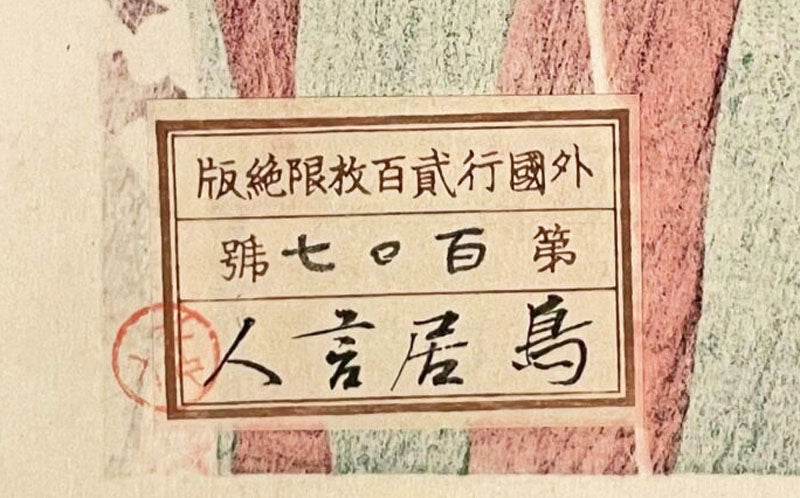 外國行貳百枚限絶版
第百〇七號
鳥居言人